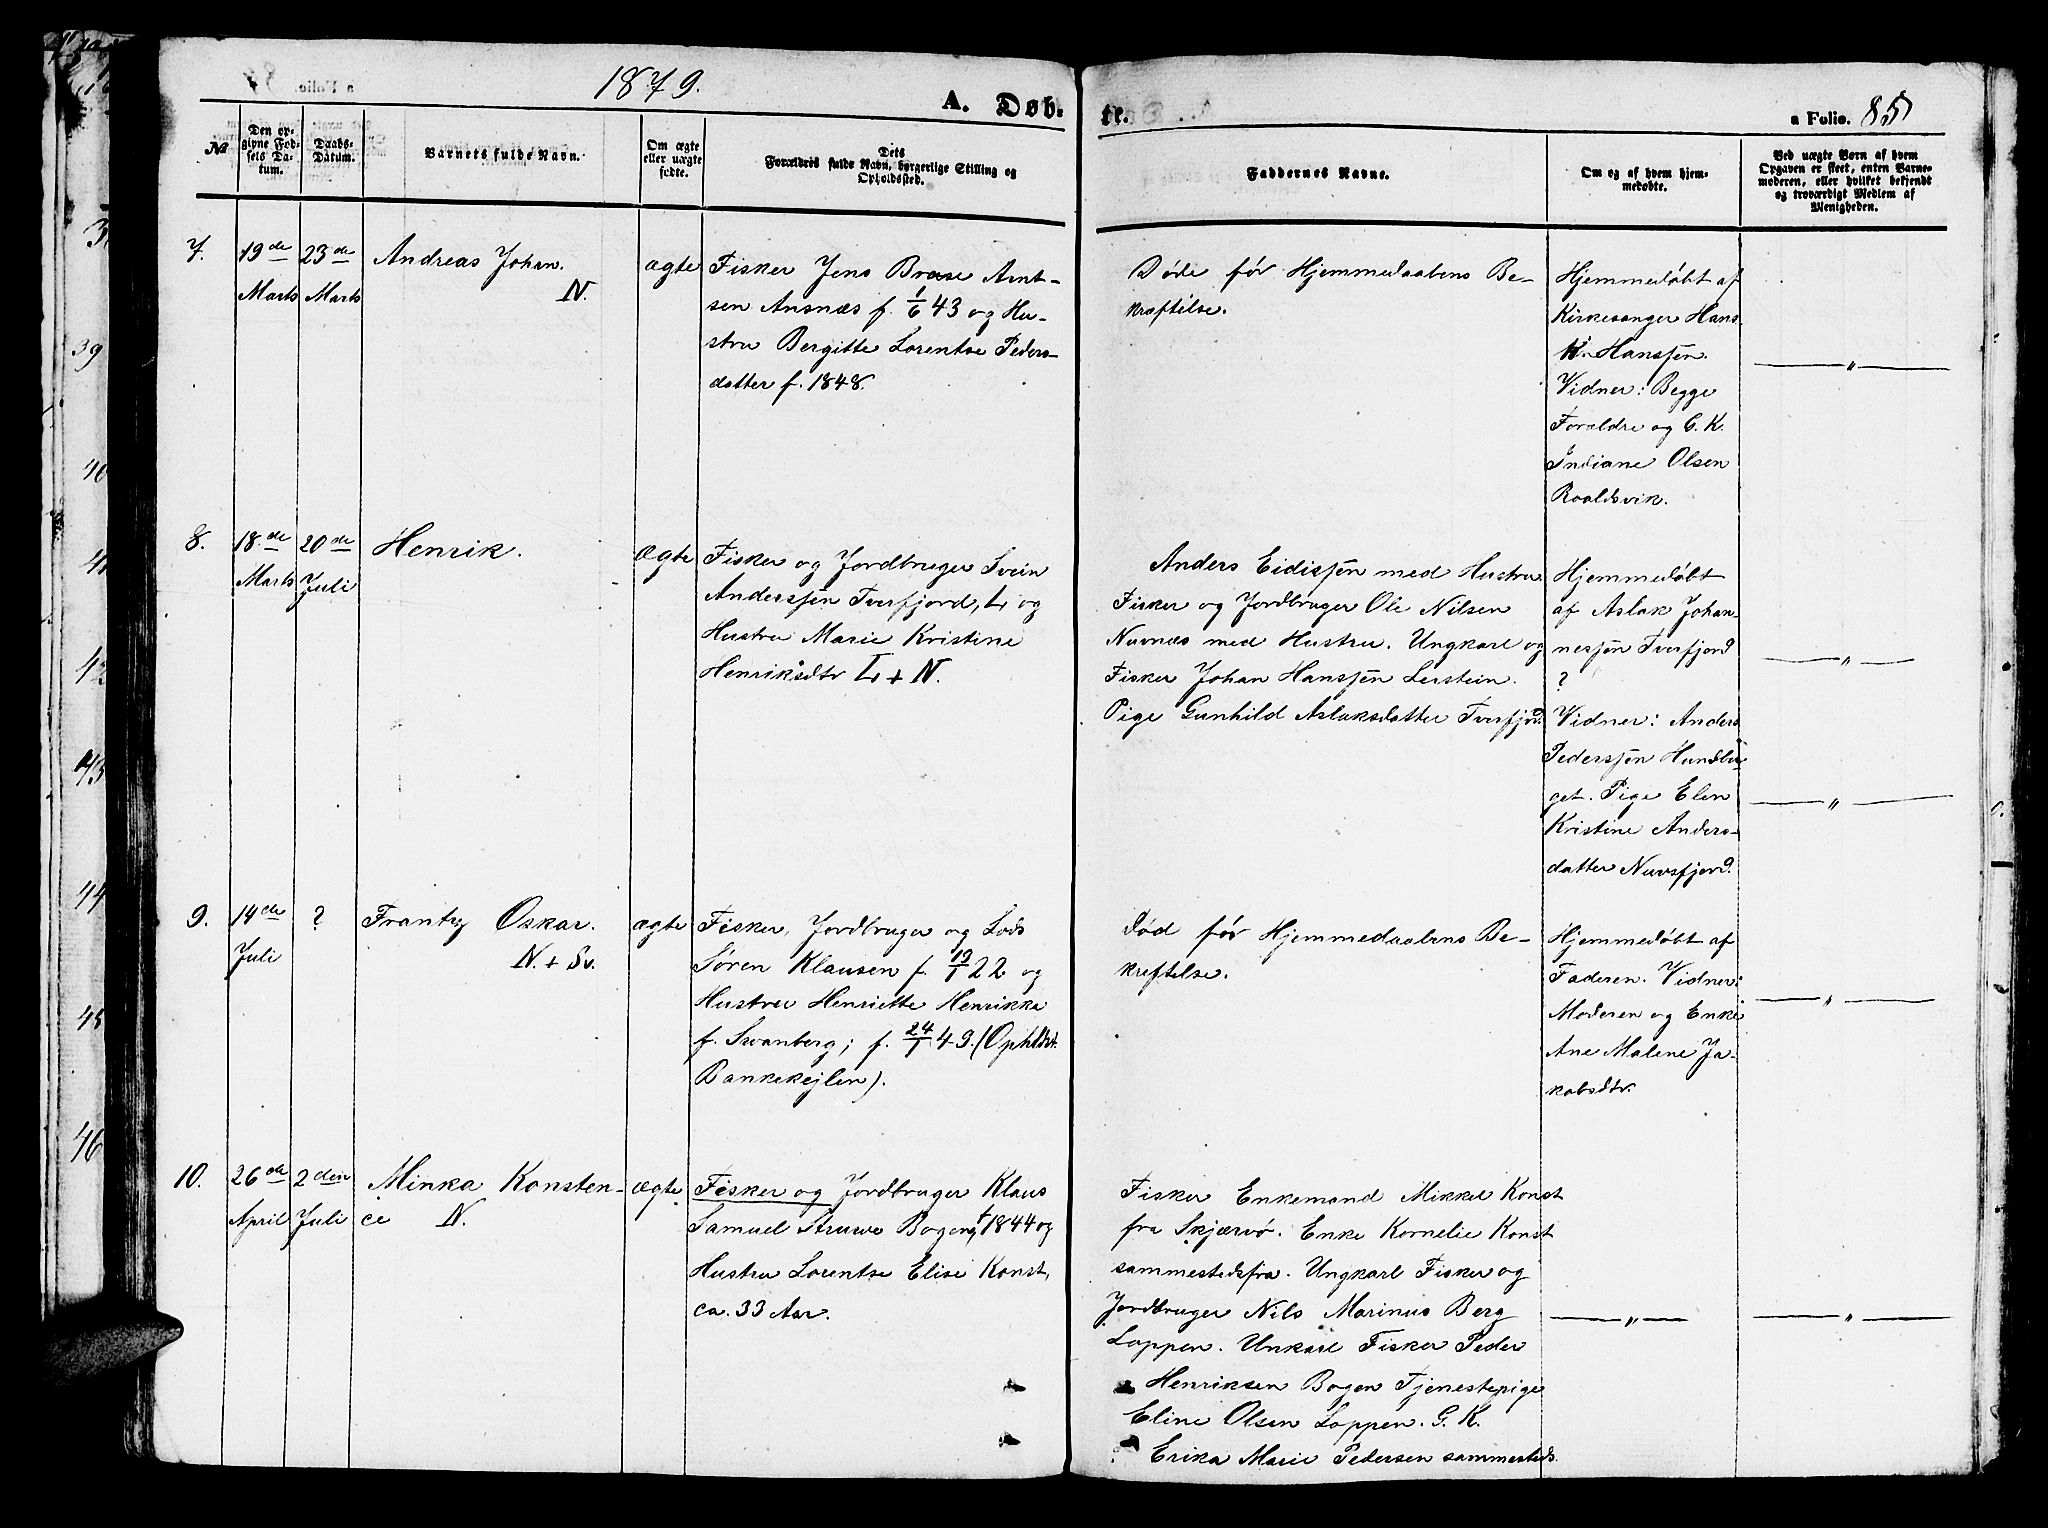 1879.
A. Døb-
te.
a Folio. 85
No
Den op-
givne Fød-
sels Da-
tum.
Daabs-
Datum.
Barnets fulde Navn.
Om ægte
eller uægte
fødte.
Dets
Forældres fulde Navn, borgerlige Stilling og
Opholdssted.
Faddernes Navne.
Om og af hvem hjem-
medøbte.
Ved uægte Børn af hvem
Opgaven er skeet, enten Barne-
moderen, eller hvilket bekjendt
og troværdigt Medlem af
Menigheden.
7.
19de
Marts
23de
Marts
Andreas Johan.
N.
ægte
Fisker Jens Brose Arnt-
sen Ansnæs f. 1/6 43 og Hu-
stru Bergitte Lorentse Peders-
datter f. 1848.
Døde før Hjemmedaabens Be-
kræftelse.
Hjemmedøbt af
Kirkesanger Hans
K. Hanssen.
Vidner: Begge
Forældre og G. K.
Indiane Olsen
Roaldsvik.
— " —
8.
18de
Marts
20de
Juli
Henrik.
Ægte
Fisker og Jordbruger Svein
Anderssen Tverfjord, L. og
Hustru Marie Kristine
Henriksdtr L + N.
Anders Eidissen med Hustru
Fisker og Jordbruger Ole Nilsen
Nuvnæs med Hustru. Ungkarl og
Fisker Johan Hanssen Lerstein.
Pige Gunhild Aslaksdatter Tverfjord.
Hjemmedøbt
af Aslak Johan-
nessen Tverfjord
?
Vidner: Anders
Pederssen Hundber-
get. Pige Elen
Kristine Anders-
datter Nuvsfjord.
— " —
— " —
9.
14de
Juli
?
Frantz Oskar.
N. + Sv.
ægte
Fisker, Jordbruger og Lods
Søren Klausen f. 19/1 22 og
Hustru Henriette Henrikke
f. Svanberg; f. 24/1 49. (Opholdst.
Bankekejlen).
Død før Hjemmedaabens Be-
kræftelse.
Hjemmedøbt af
Faderen. Vidner:
Moderen og Enke
Ane Malene Ja-
kobsdtr.
— " —
10.
26de
April
2den
Juli
Minka Konsten-
ce N.
ægte
Fisker og Jordbruger Klaus
Samuel Struwe Bogen, f 1844 og
Hustru Lorentse Elise Konst,
ca. 33 Aar.
Fisker Enkemand Mikkel Konst
fra Skjærvö. Enke Kornelie Konst
sammestedsfra. Ungkarl Fisker og
Jordbruger Nils Marinus Berg
Loppen. Unkarl Fisker Peder
Henriksen Bogen Tjenestepige
Eline Olsen Loppen. G. K.
Erika Marie Pedersen sammesteds
— " —
— " —
39
40
41
42
43
44
45
46